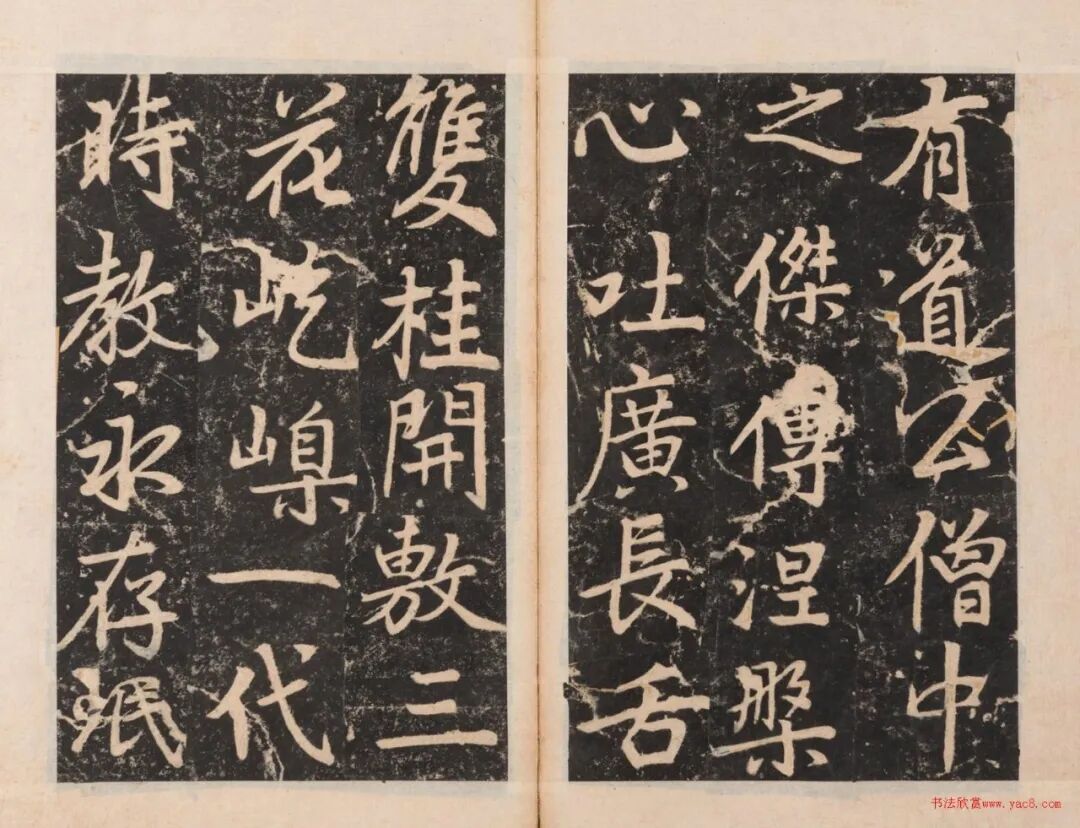 有道公僧中
之傑傳涅槃
心吐廣長舌
雙桂開敷三
花屹嵲一代
時教永存珉
书法欣赏www.yac8.com